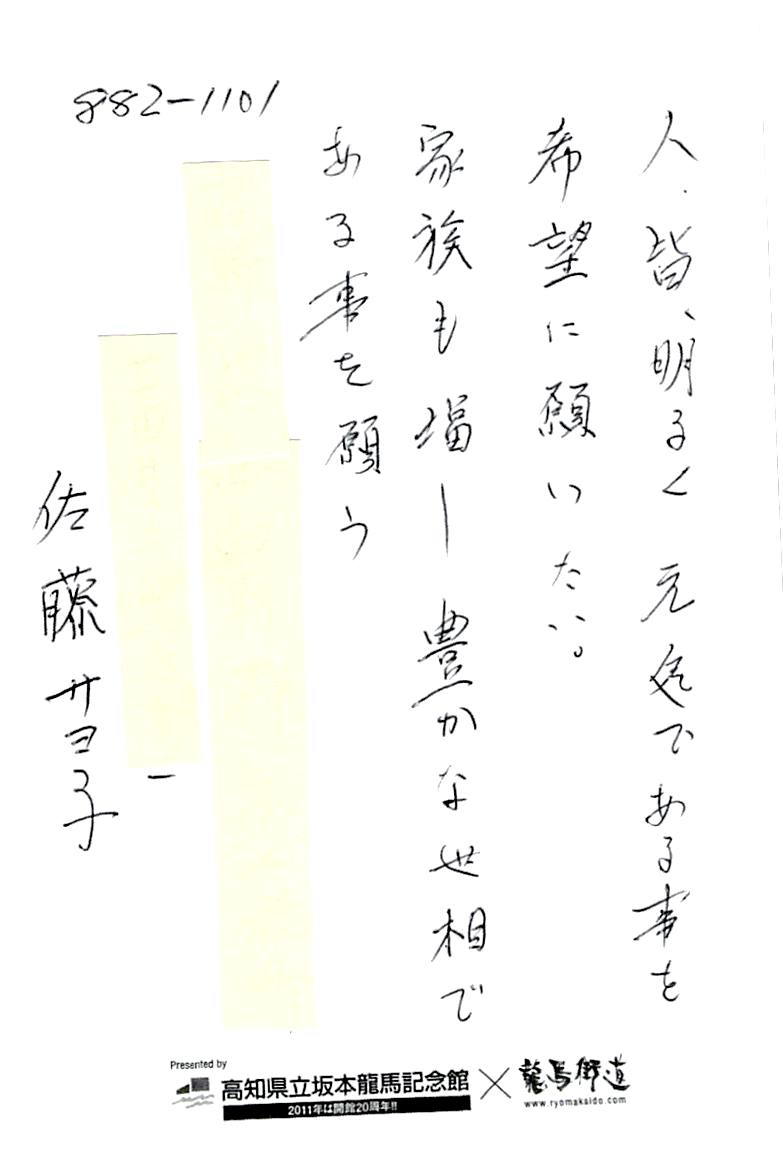 人.皆、明るく元気である事を
希望に願いたい。
家族も増し豊かな世相で
ある事を願う
882-1101
佐藤サヨ子
Presented by
高知県立坂本龍馬記念館
2011年は開館20周年!!
×
龍馬街道
www.ryomakaido.com